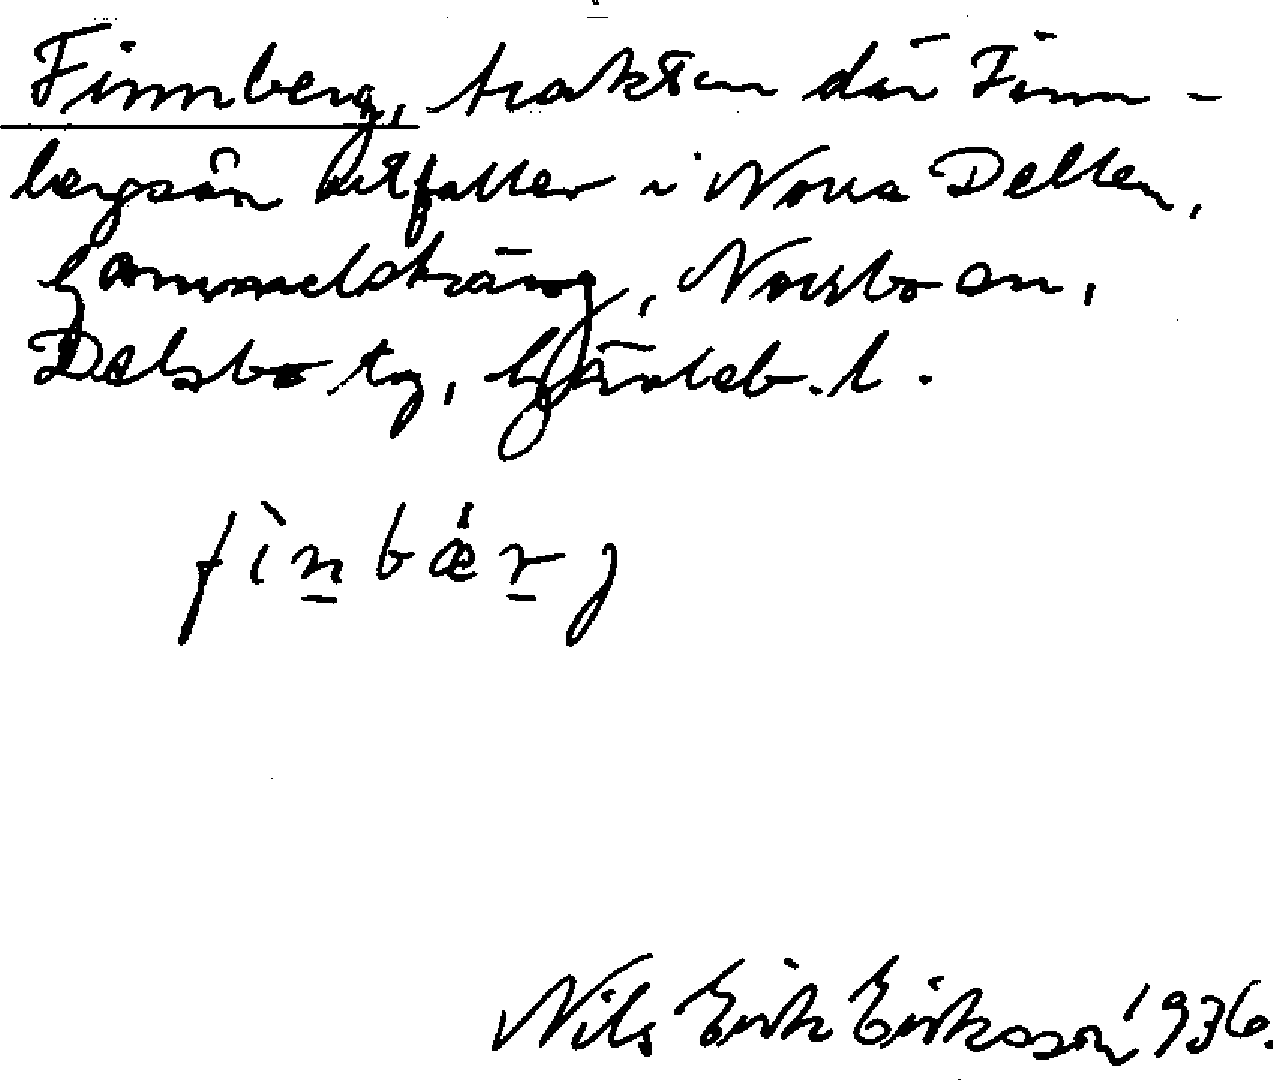 Finnberg, trakten där Finn-
bergsån utfaller i Norra Dellen,
Gammelsträng, Norrbo sn,
Delsbo tg, Gävleb. l.
fìnbǽrj
Nils Erik Eriksson 1936.